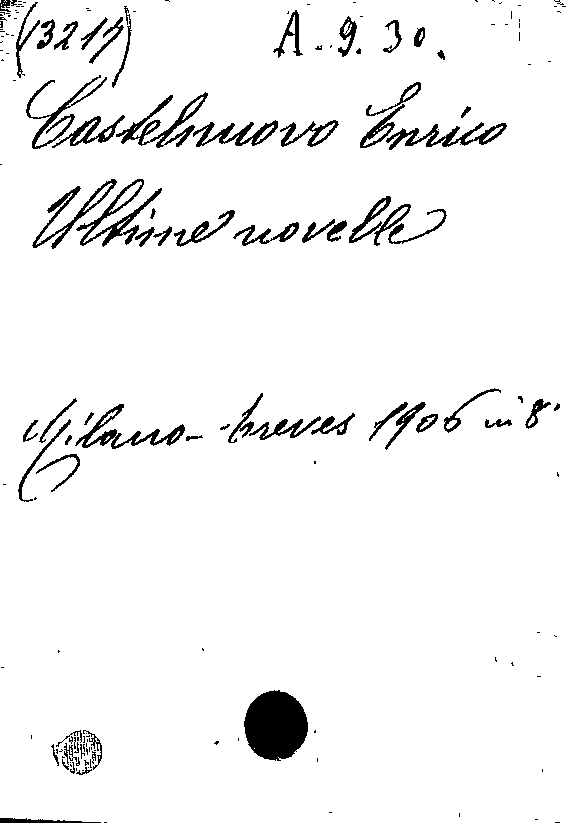 (13217) A. 9. 30.
Castelnuovo Enrico
Ultime novelle
Milano - Treves 1906 in 8°